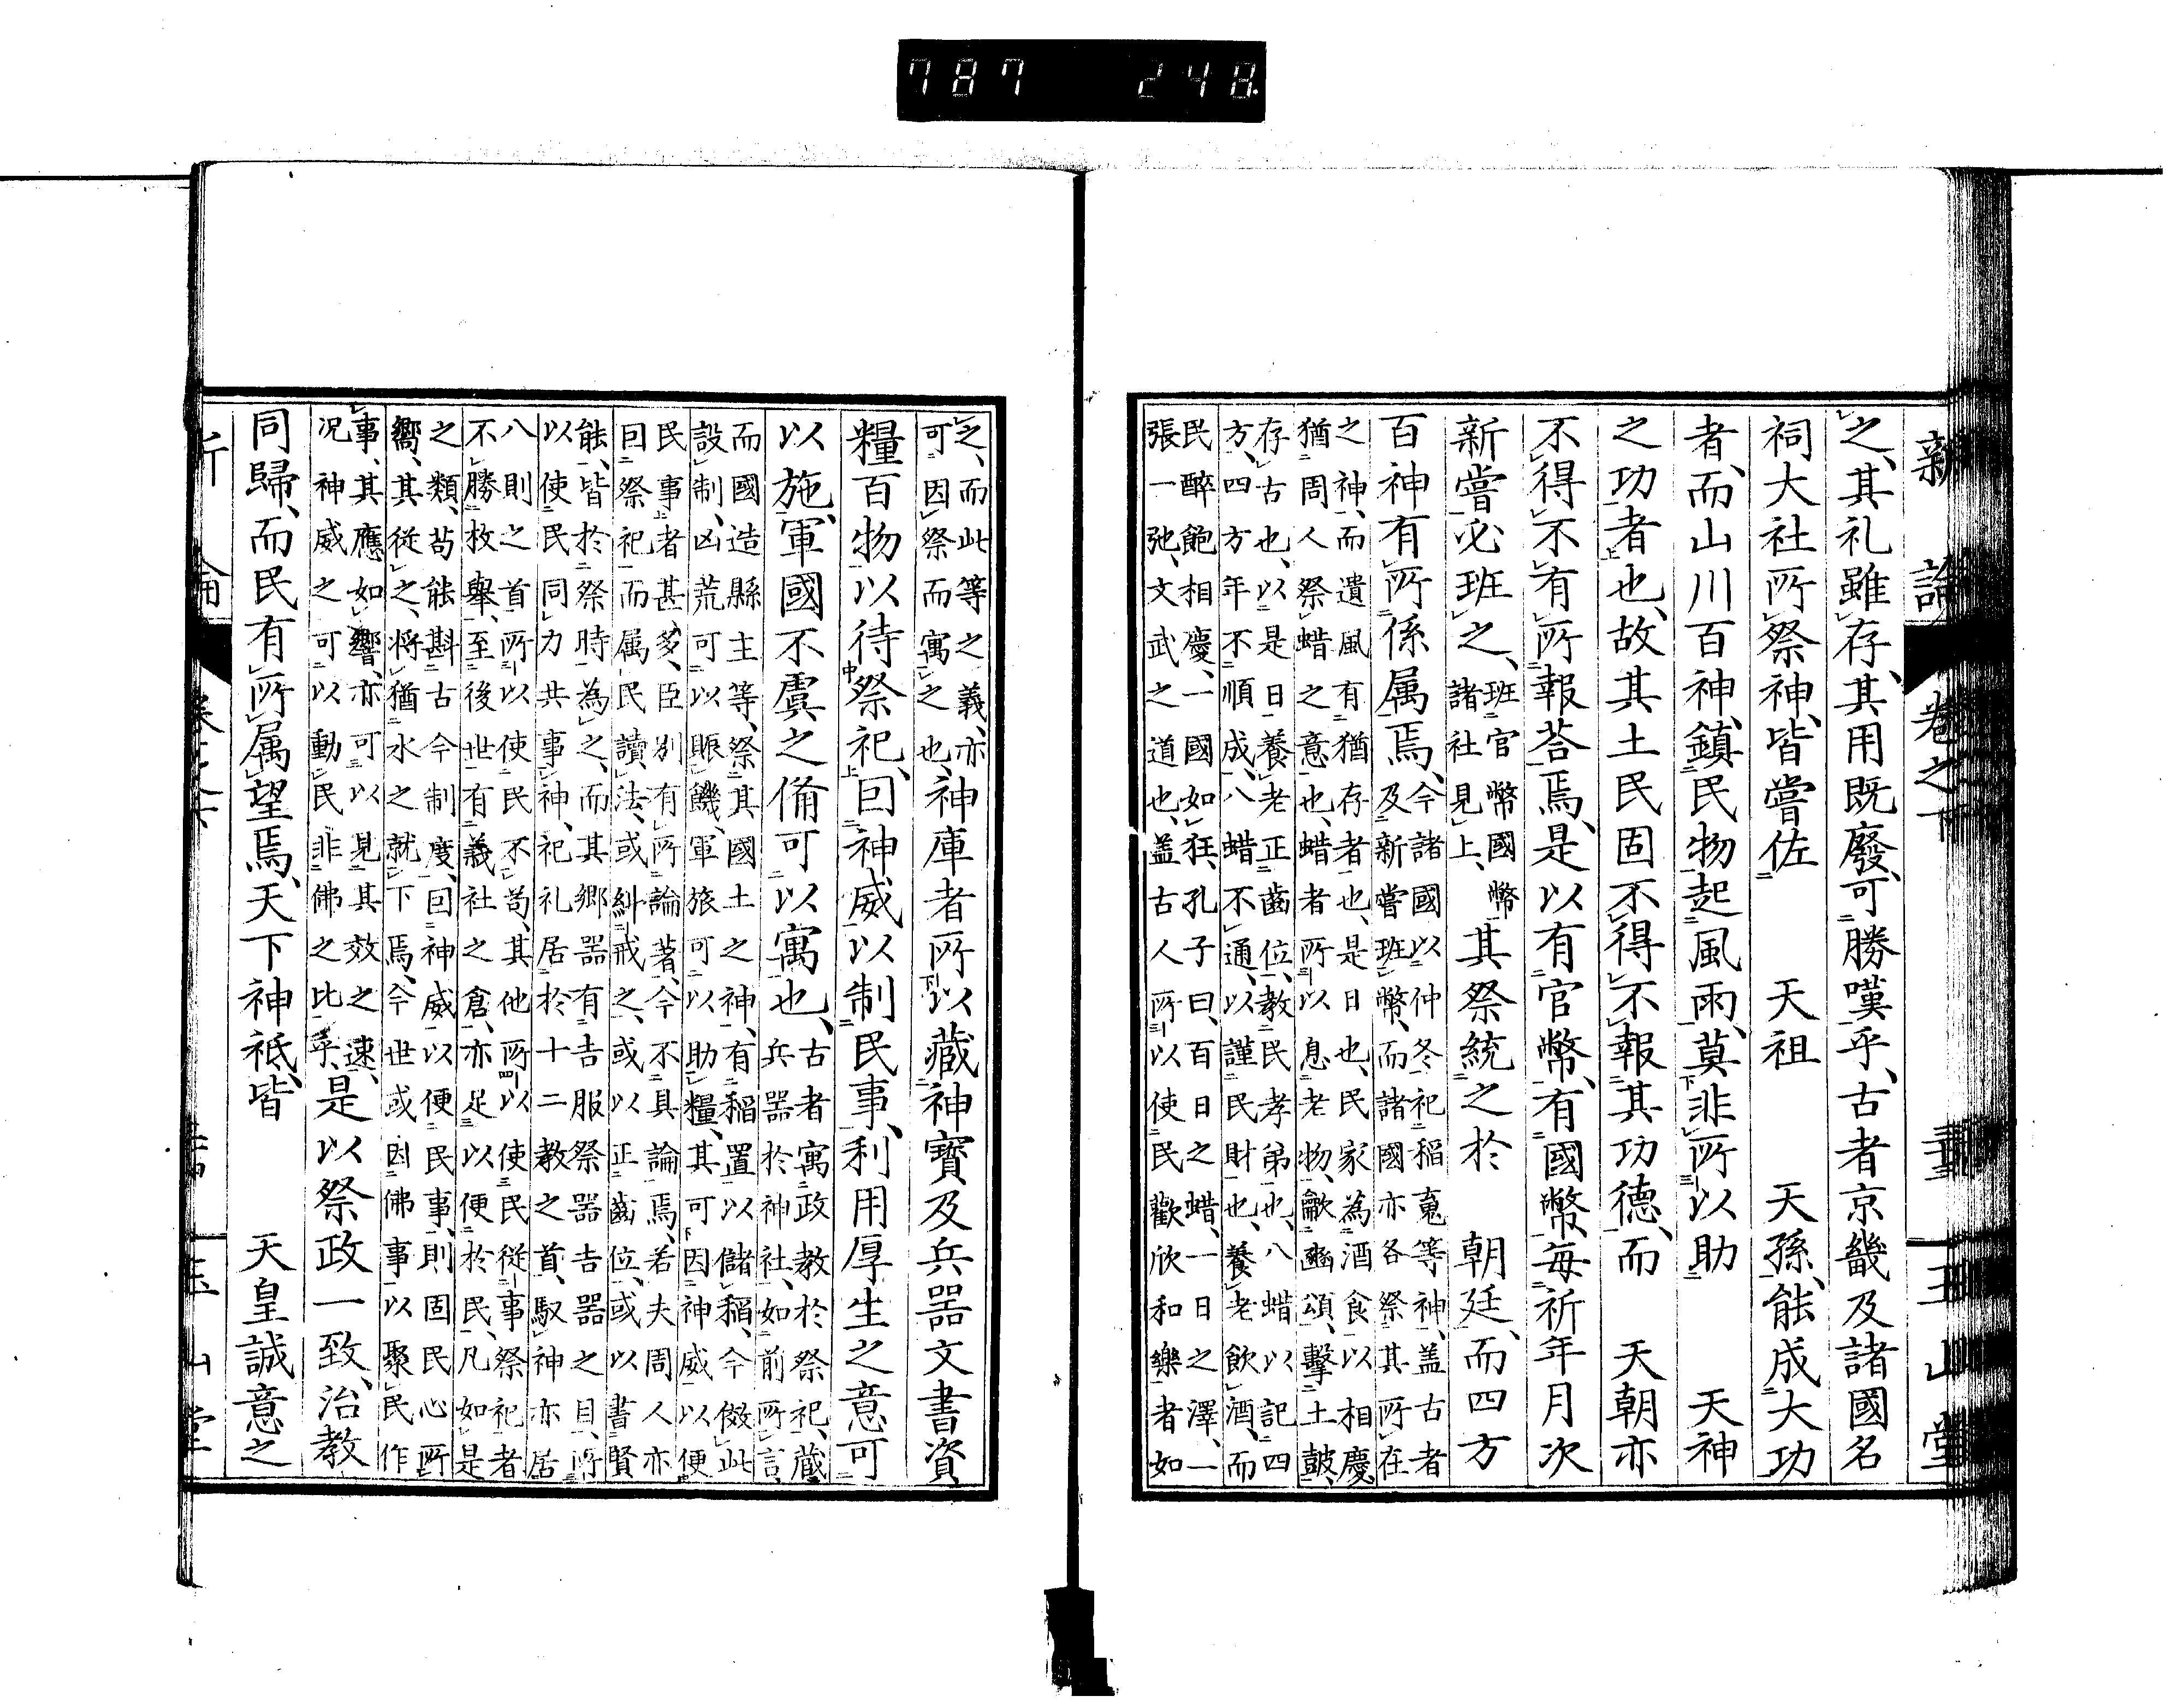 787 248
新論 卷之下 玉山堂
之、其礼雖存、其用既廢、可勝嘆乎、古者京畿及諸國名
祠大社所祭神、皆嘗佐 天祖 天孫、能成大功
者、而山川百神、鎮民物起風雨、莫非所以助 天神
之功者也、故其土民固不得不報其功德、而 天朝亦
不得不有所報荅焉、是以有官幣、有國幣、每祈年月次
新嘗必班之、班官幣國幣諸社見上、其祭統之於 朝廷、而四方
百神有所係属焉、今諸國以仲冬祀稲等神、盖古者
及新嘗班幣、而諸國亦各祭其所在
之神、而遺風有猶存者也、是日也、民家為酒食以相慶
猶周人祭蜡之意也、蜡者所以息老物、龡豳頌、擊土鼓、
存古也、以是日養老正齒位、教民孝弟也、八蜡以記四
方、四方年不順成、八蜡不通、以謹民財也、養老飲酒、而
民醉飽相慶、一國如狂、孔子曰、百日之蜡、一日之澤、一
張一弛、文武之道也、盖古人所以使民歡欣和樂者如
之、而此等之義、亦可因祭而寓之也、神庫者所以藏神寶及兵器文書資
糧百物以待祭祀、因神威以制民事、利用厚生之意可
以施、軍國不虞之備可以寓也、古者寓政教於祭祀、藏
兵器於神社、如前所言、
而國造縣主等、祭其國土之神、有稲置以儲稲、今傚此
設制、凶荒可以賑饑、軍旅可以助糧、其可因神威以便
民事者甚多、臣別有所論著、今不具論焉、若夫周人亦
因祭祀而属民讀法、或糾戒之、或以正齒位、或以書賢
能、皆於祭時為之、而其郷器有吉服祭器吉器之目、所
以使民同力共事神、祀礼居於十二教之首、馭神亦居
八則之首、所以使民不苟、其他所以使民従事祭祀者
不勝枚舉、至後世有義社之倉、亦足以便於民、凡如是
之類、苟能斟古今制度、因神威以便民事、則固民心所
嚮、其従之、将猶水之就下焉、今世或因佛事以聚民作
事、其應如響、亦可以見其效之速、
况神威之可以動民非佛之比乎、是以祭政一致、治教
同歸、而民有所属望焉、天下神祇、皆 天皇誠意之